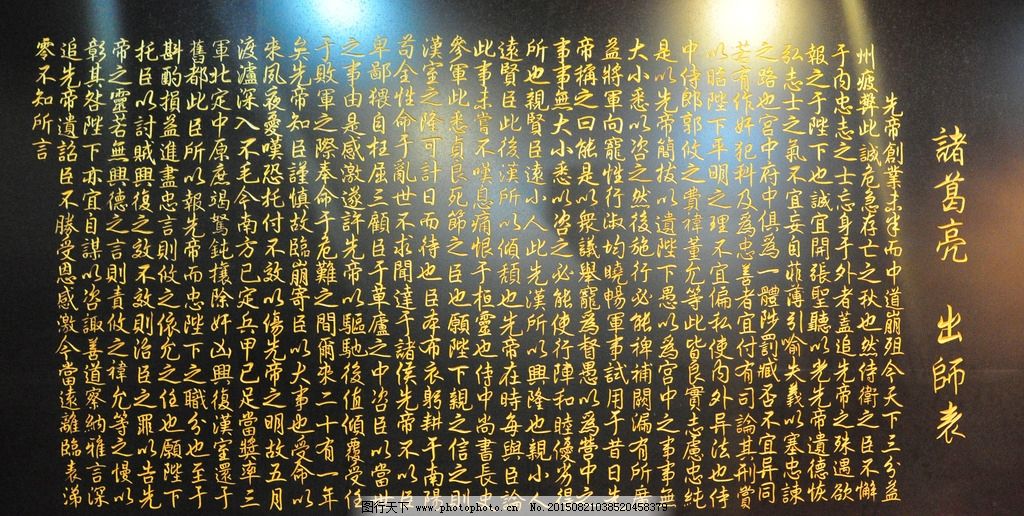 諸葛亮 出師表
先帝創業未半而中道崩殂今天下三分益
州疲弊此誠危急存亡之秋也然侍衛之臣不懈
于內忠志之士忘身于外者蓋追先帝之殊遇欲
報之于陛下也誠宜開張聖聽以光先帝遺德恢
弘志士之氣不宜妄自菲薄引喻失義以塞忠諫
之路也宮中府中俱為一體陟罰臧否不宜异同
若有作奸犯科及為忠善者宜付有司論其刑賞
以昭陛下平明之理不宜偏私使內外异法也侍
中侍郎郭攸之費禕董允等此皆良實志慮忠純
是以先帝簡拔以遺陛下愚以為宮中之事事無
大小悉以咨之然後施行必能裨補闕漏有所廣
益將軍向寵性行淑均曉暢軍事試用于昔日先
帝稱之曰能是以眾議舉寵為督愚以為營中之
事事無大小悉以咨之必能使行陣和睦優劣得
所也親賢臣遠小人此先漢所以興隆也親小人
遠賢臣此後漢所以傾頹也先帝在時每與臣論
此事未嘗不嘆息痛恨于桓靈也侍中尚書長史
參軍此悉貞良死節之臣也願陛下親之信之則
漢室之隆可計日而待也臣本布衣躬耕于南陽
苟全性命于亂世不求聞達于諸侯先帝不以臣
卑鄙猥自枉屈三顧臣于草廬之中咨臣以當世
之事由是感激遂許先帝以驅馳後值傾覆受任
于敗軍之際奉命于危難之間爾來二十有一年
矣先帝知臣謹慎故臨崩寄臣以大事也受命以
來夙夜憂嘆恐托付不效以傷先帝之明故五月
渡瀘深入不毛今南方已定兵甲已足當獎率三
軍北定中原庶竭駑鈍攘除奸凶興復漢室還于
舊都此臣所以報先帝而忠陛下之職分也至于
斟酌損益進盡忠言則攸之依允之任也願陛下
托臣以討賊興復之效不效則治臣之罪以告先
帝之靈若無興德之言則責攸之禕允等之慢以
彰其咎陛下亦宜自謀以咨諏善道察納雅言深
追先帝遺詔臣不勝受恩感激今當遠離臨表涕
零不知所言
图行天下 PHOTOPHOTO.CN
www.photophoto.cn
No.20150821038520458379